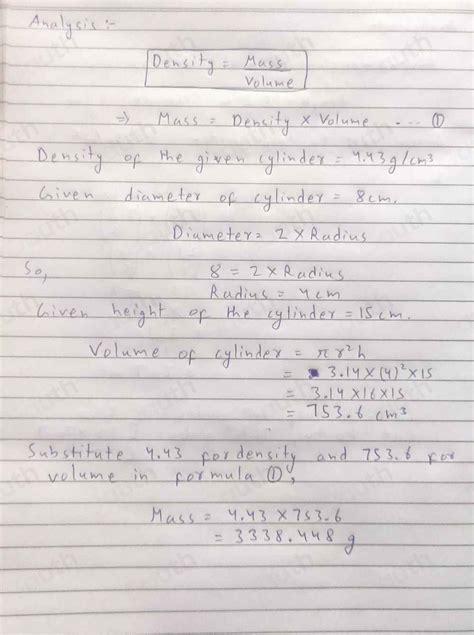 Analysis :-
Density = Mass
Volume
⇒ Mass = Density × Volume .... ①
Density of the given cylinder = 4.43 g/cm³
Given diameter of cylinder = 8 cm.
Diameter = 2 × Radius
So,
8 = 2 × Radius
Radius = 4 cm
Given height of the cylinder = 15 cm.
Volume of cylinder = πr²h
= 3.14 × (4)² × 15
= 3.14 × 16 × 15
= 753.6 cm³
Substitute 4.43 for density and 753.6 for
volume in formula ①,
Mass = 4.43 × 753.6
= 3338.448 g